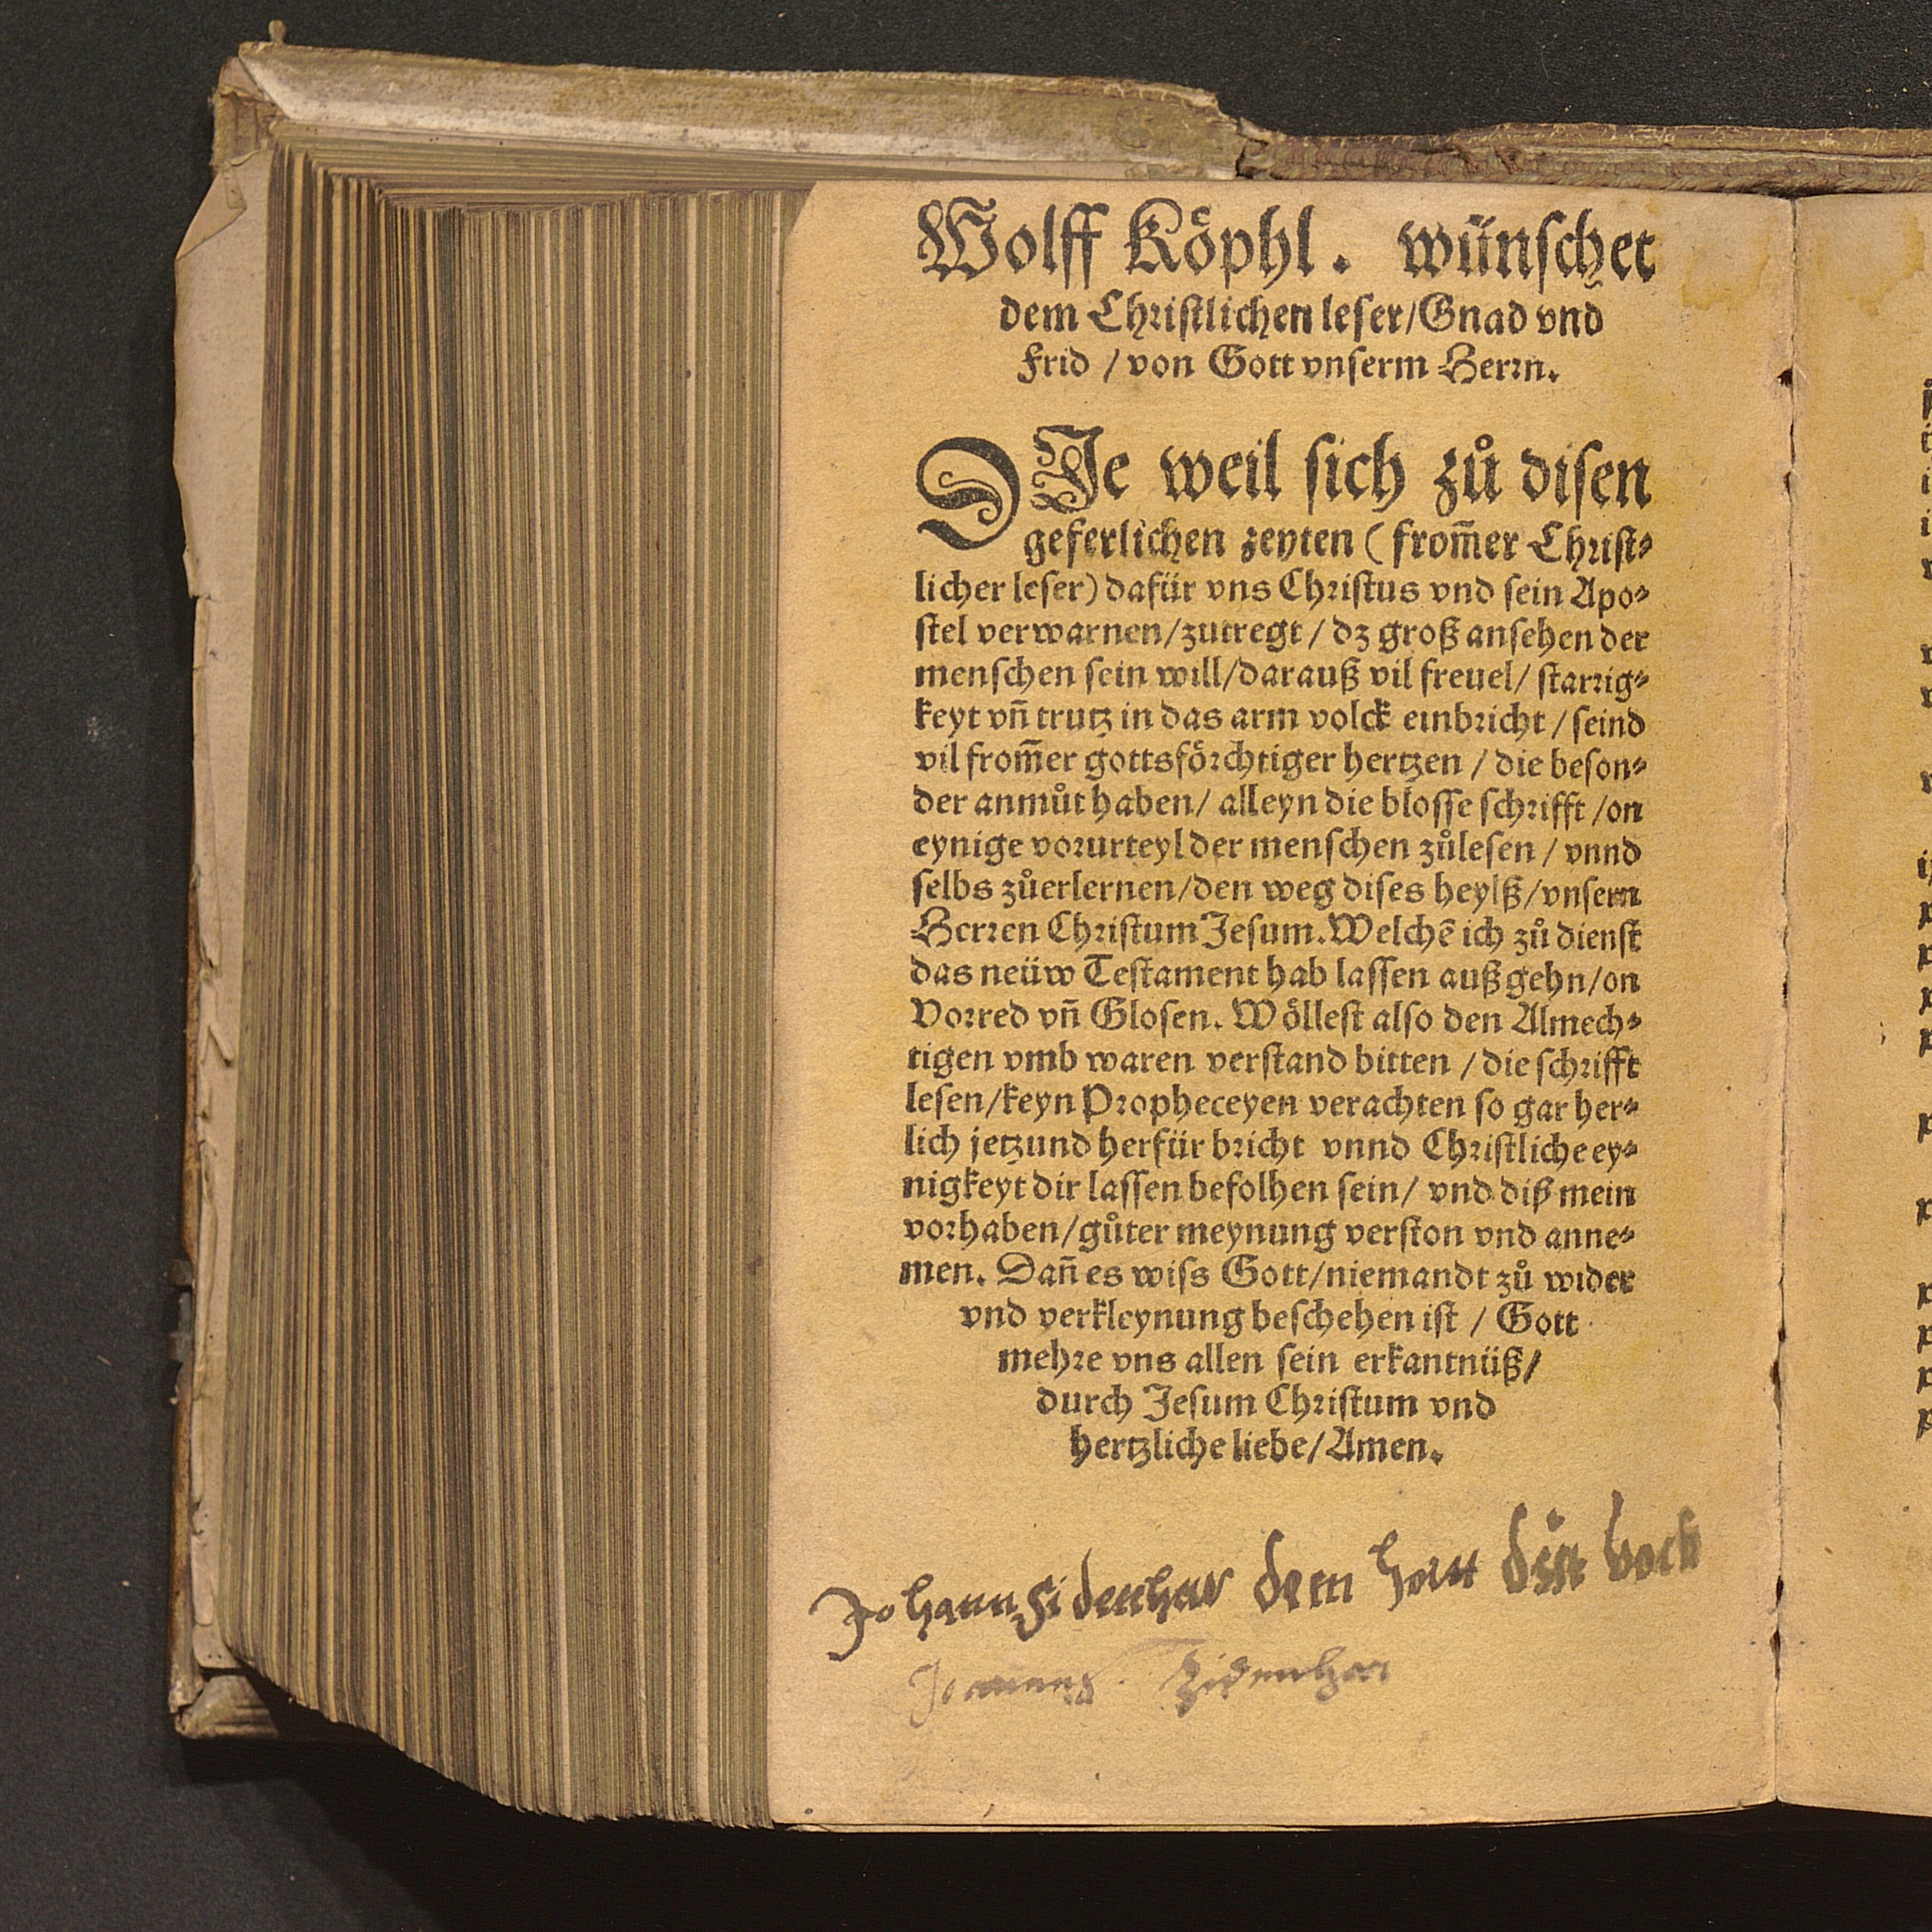 Wolff Köphl. wünschet
dem Christlichen leser/Gnad vnd
frid / von Gott vnserm Herrn.
DIe weil sich zů disen
geferlichen zeyten (from̃er Christ⸗
licher leser) dafür vns Christus vnd sein Apo⸗
stel verwarnen/zutregt / dz groß ansehen der
menschen sein will/darauß vil freuel/ starrig⸗
keyt vñ trutz in das arm volck einbricht / seind
vil from̃er gottsförchtiger hertzen / die beson⸗
der anmůt haben/ alleyn die blosse schrifft /on
eynige vorurteyl der menschen zůlesen / vnnd
selbs zůerlernen/den weg dises heylß/vnsern
Herren Christum Jesum. Welchẽ ich zů dienst
das neüw Testament hab lassen außgehn/on
Vorred vñ Glosen. Wöllest also den Almech⸗
tigen vmb waren verstand bitten / die schrifft
lesen/keyn Propheceyen verachten so gar her⸗
lich jetzund herfür bricht vnnd Christliche ey⸗
nigkeyt dir lassen befolhen sein/ vnd diß mein
vorhaben/gůter meynung verston vnd anne⸗
men. Dañ es wiss Gott/niemandt zů wider
vnd verkleynung beschehen ist / Gott
mehre vns allen sein erkantnüß/
durch Jesum Christum vnd
hertzliche liebe/Amen.
Johann dem